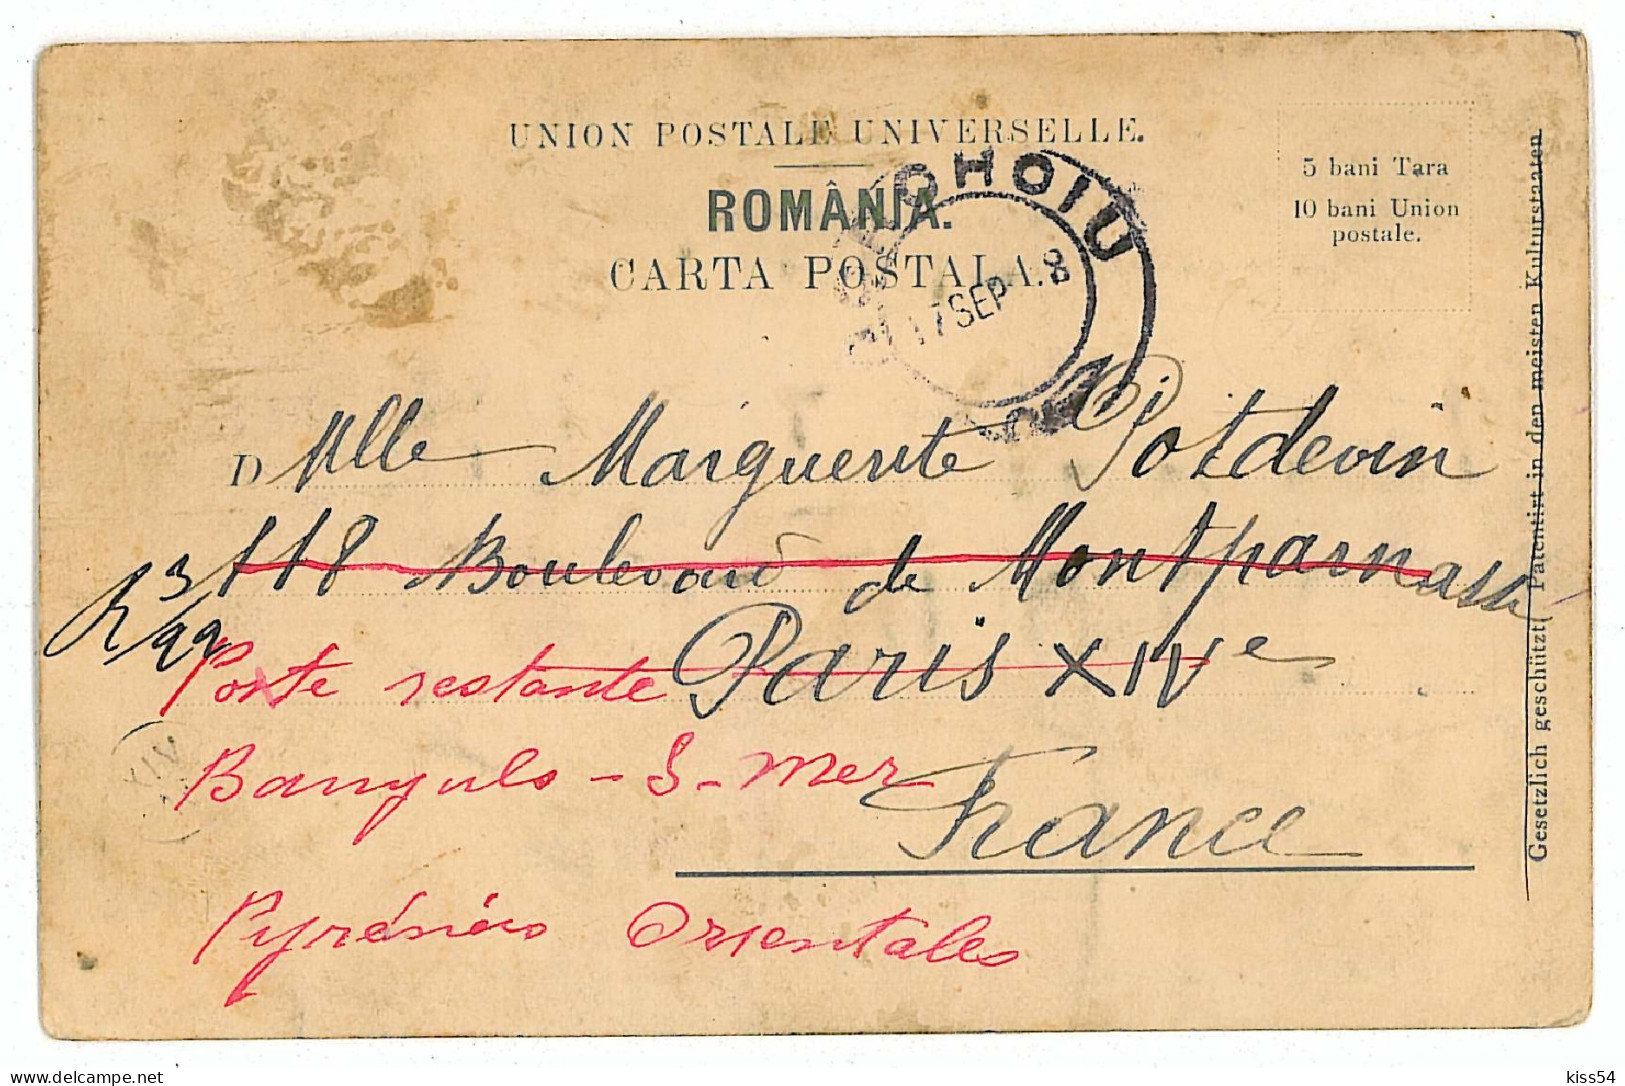 UNION POSTALE UNIVERSELLE.
ROMÂNIA.
CARTA POSTALA.
5 bani Tara
10 bani Union
postale.
OHOIU
17 SEP 8
D Mlle Marguerite Potdevin
118 Boulevard de Montparnasse
Paris XIVe
Poste restante
Banyuls - S - Mer
France
Pyrénées Orientales
XIV
Gesetzlich geschützt( Patentirt in den meisten Kulturstaaten
kiss54
delcampe.net